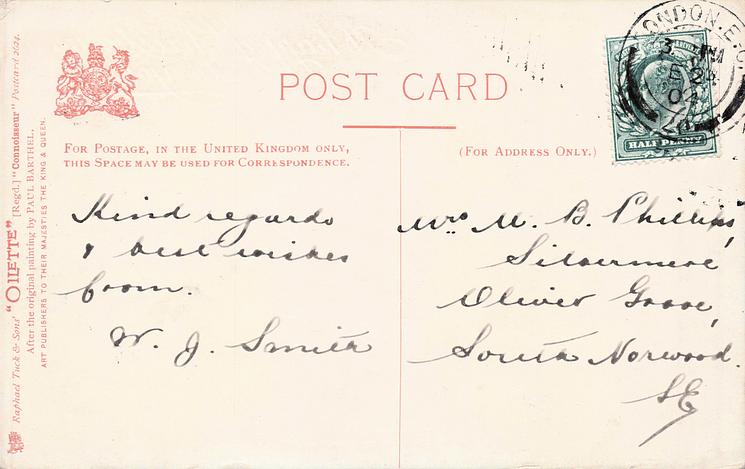 POST CARD
FOR POSTAGE, IN THE UNITED KINGDOM ONLY,
THIS SPACE MAY BE USED FOR CORRESPONDENCE.
(FOR ADDRESS ONLY.)
Kind regards
& best wishes
from.
W. J. Smith
Mrs M. B. Phillips,
Silvermere
Oliver Grove,
South Norwood.
SE
LONDON. E.C.
SE 24
04
HALF PENNY
Raphael Tuck & Sons' "OILETTE" [Regd.] "Connoisseur" Postcard 2624.
After the original painting by PAUL BARTHEL.
ART PUBLISHERS TO THEIR MAJESTIES THE KING & QUEEN.